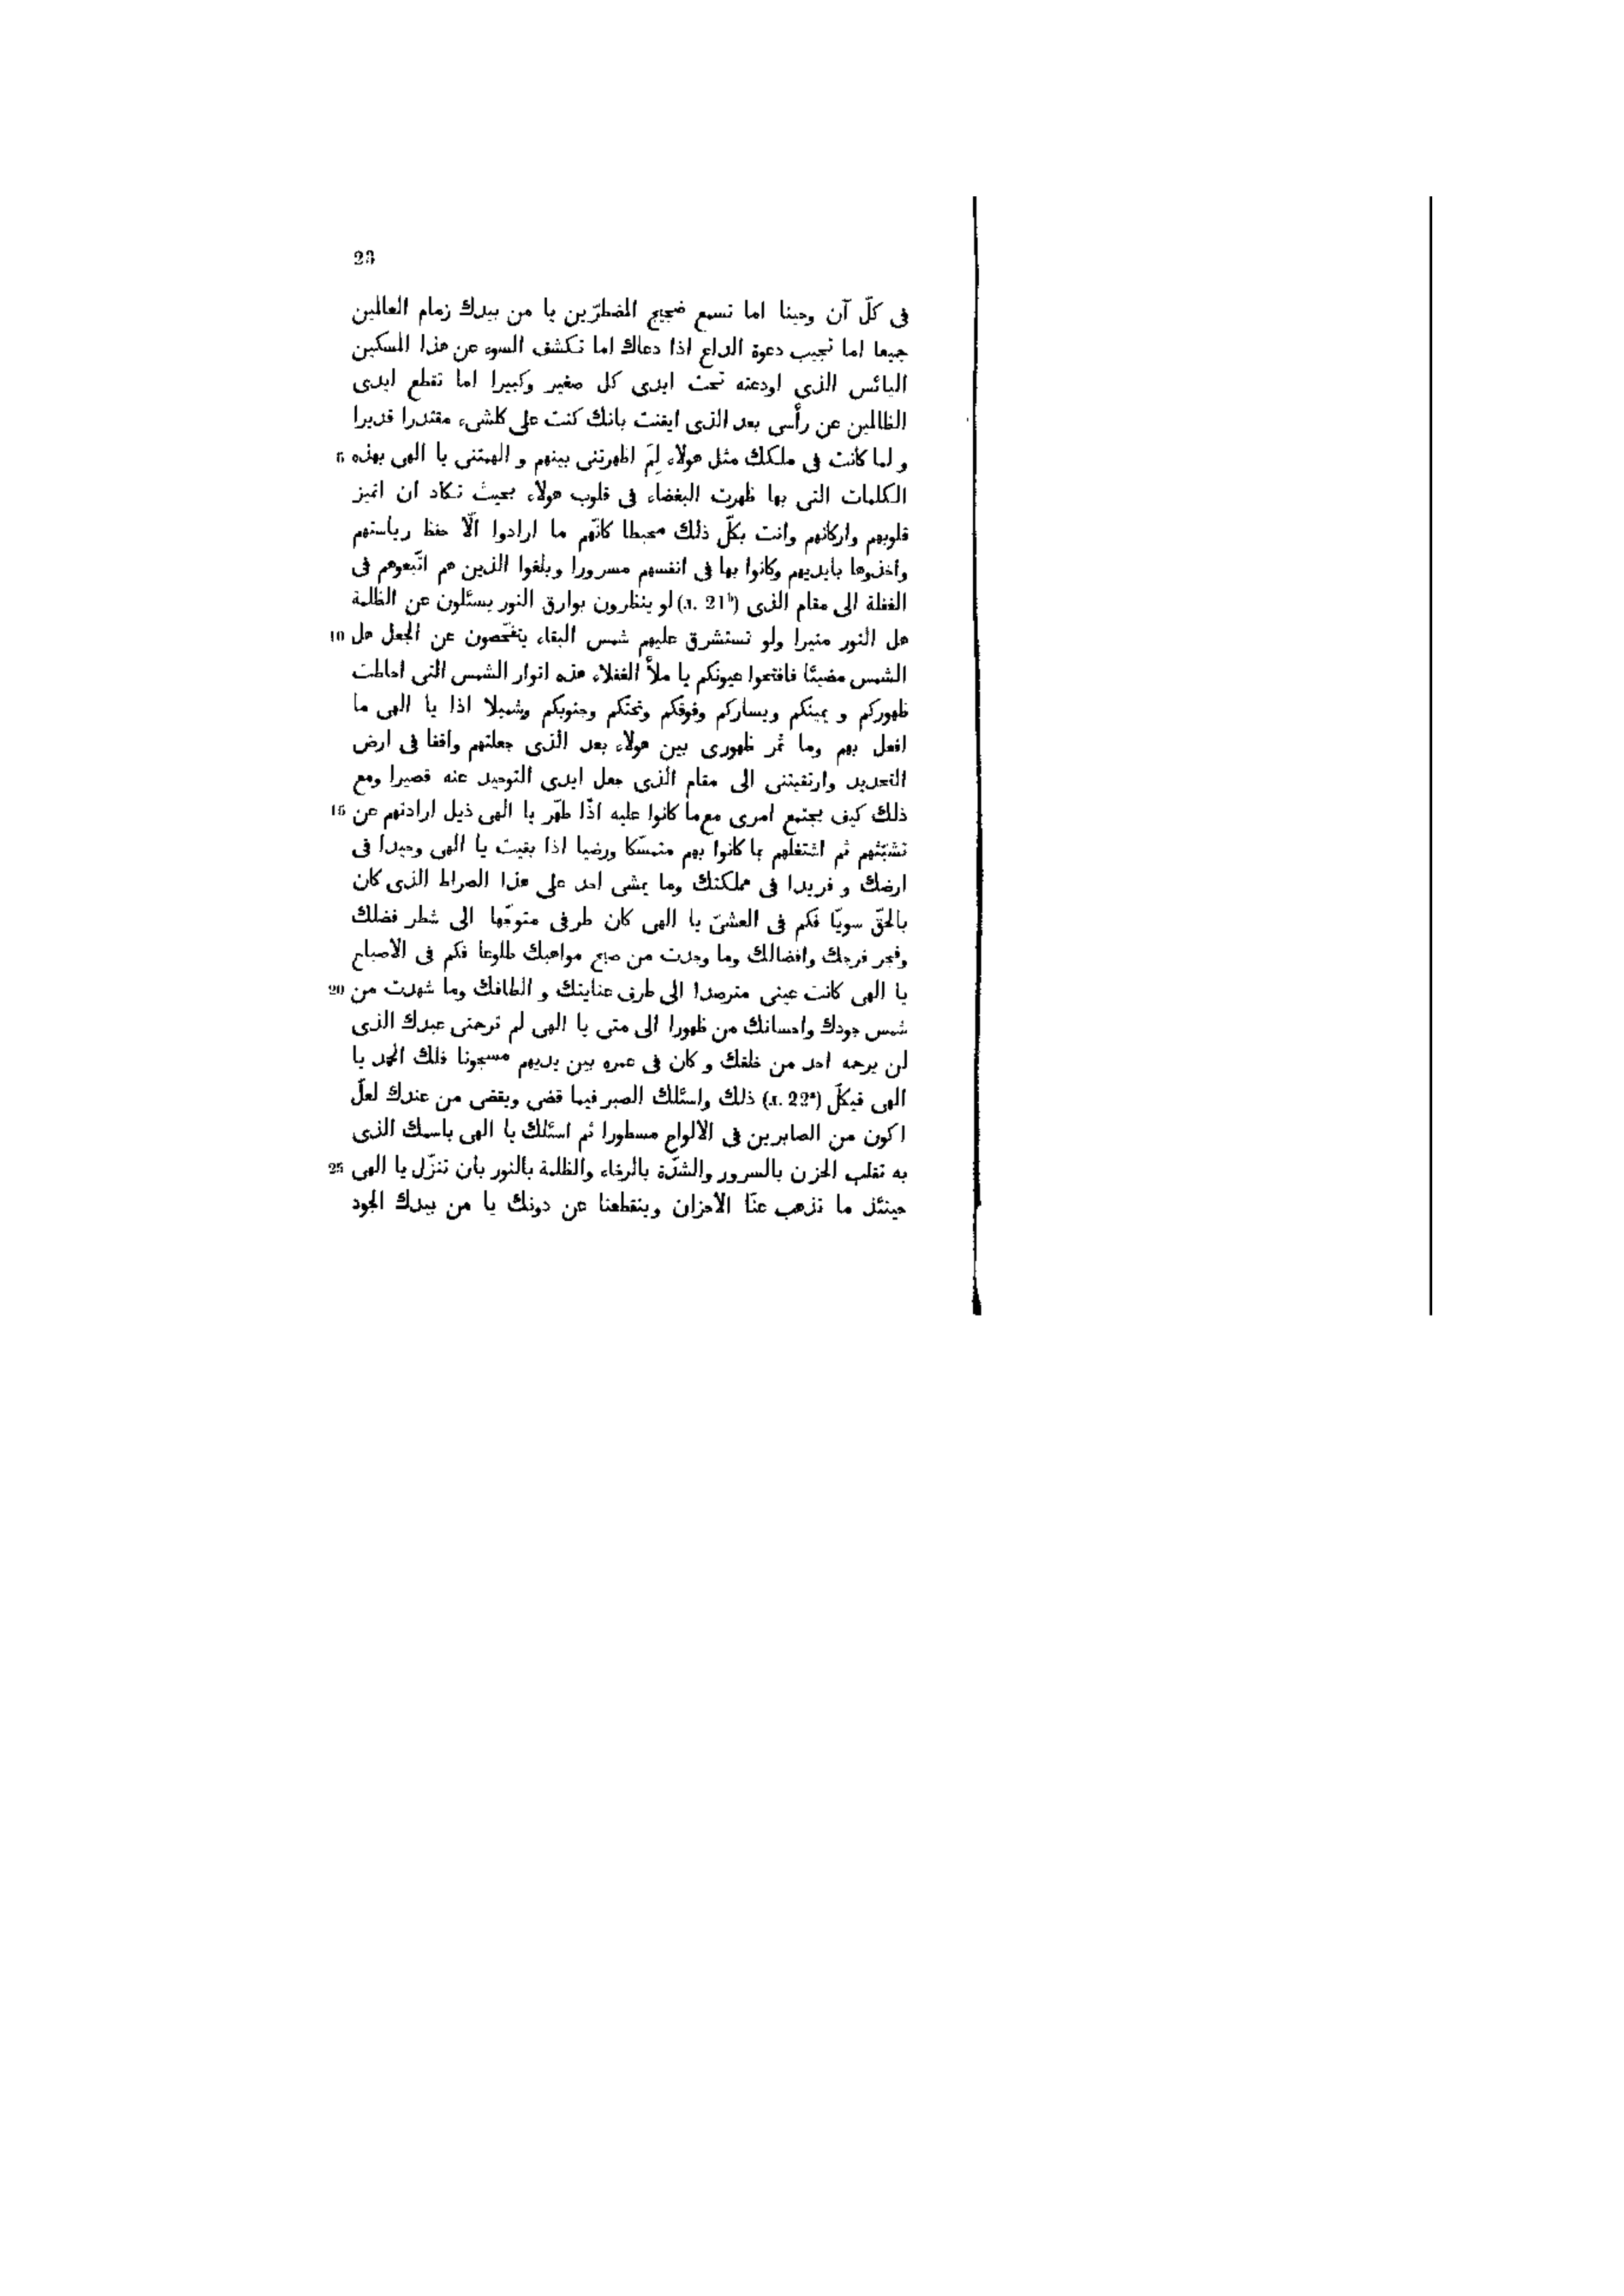 23
فى كلّ آن وحينا اما تسمع ضجيج المضطرّين يا من بيدك زمام العالمين
جميعا اما تجيب دعوة الداع اذا دعاك اما تكشف السوء عن هذا المسكين
البائس الذى اودعته تحت ايدى كل صغير وكبيرا اما تقطع ايدى
الظالمين عن رأسى بعد الذى ايقنت بانك كنت على كلشىء مقتدرا قديرا
و لما كانت فى ملكك مثل هولاء لِمَ اظهرتنى بينهم و الهمتنى يا الهى بهذه 5
الكلمات التى بها ظهرت البغضاء فى قلوب هولاء بحيث تكاد ان اتميز
قلوبهم واركانهم وانت بكلّ ذلك محيطا كانّهم ما ارادوا الّا حفظ رياستهم
واخذوها بايديهم وكانوا بها فى انفسهم مسرورا وبلغوا الذين هم اتّبعوهم فى
الغفلة الى مقام الذى (л. 21ᵇ) لو ينظرون بوارق النور يسئلون عن الظلمة
هل النور منيرا ولو تستشرق عليهم شمس البقاء يتفحّصون عن الجعل هل 10
الشمس مضيئا فافتحوا عيونكم يا ملأ الغفلاء هذه انوار الشمس التى احاطت
ظهوركم و يمينكم ويساركم وفوقكم وتحتكم وجنوبكم وشميلا اذا يا الهى ما
افعل بهم وما ثمر ظهورى بين هولاء بعد الذى جعلتهم واقفا فى ارض
التحديد وارتقيتنى الى مقام الذى جعل ايدى التوحيد عنه قصيرا ومع
ذلك كيف يجتمع امرى مع ما كانوا عليه اذًا طهّر يا الهى ذيل ارادتهم عن 15
تشبّثهم ثم اشتغلهم بما كانوا بهم متمسّكا ورضيا اذا بقيت يا الهى وحيدا فى
ارضك و فريدا فى مملكتك وما يمشى احد على هذا الصراط الذى كان
بالحقّ سويّا فكم فى العشىّ يا الهى كان طرفى متوجّها الى شطر فضلك
وفجر فرجك وافضالك وما وجدت من صبح مواهبك طلوعا فكم فى الاصباح
يا الهى كانت عينى مترصدا الى طرف عنايتك و الطافك وما شهدت من 20
شمس جودك واحسانك من ظهورا الى متى يا الهى لم ترحمنى عبدك الذى
لن يرحمه احد من خلقك و كان فى عمره بين يديهم مسجونا فلك الحمد يا
الهى فيكلّ (л. 22ᵃ) ذلك واسئلك الصبر فيما قضى ويقضى من عندك لعلّ
اكون من الصابرين فى الالواح مسطورا ثم اسئلك يا الهى باسمك الذى
به تقلب الحزن بالسرور والشدّة بالرخاء والظلمة بالنور بان تنزّل يا الهى 25
حينئذ ما تذهب عنّا الاحزان وينقطعنا عن دونك يا من بيدك الجود